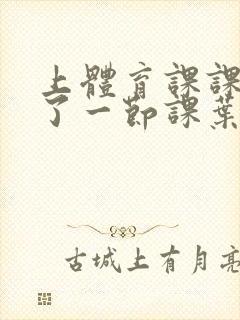 上體育課課
了一節課葉
古城上有月亮